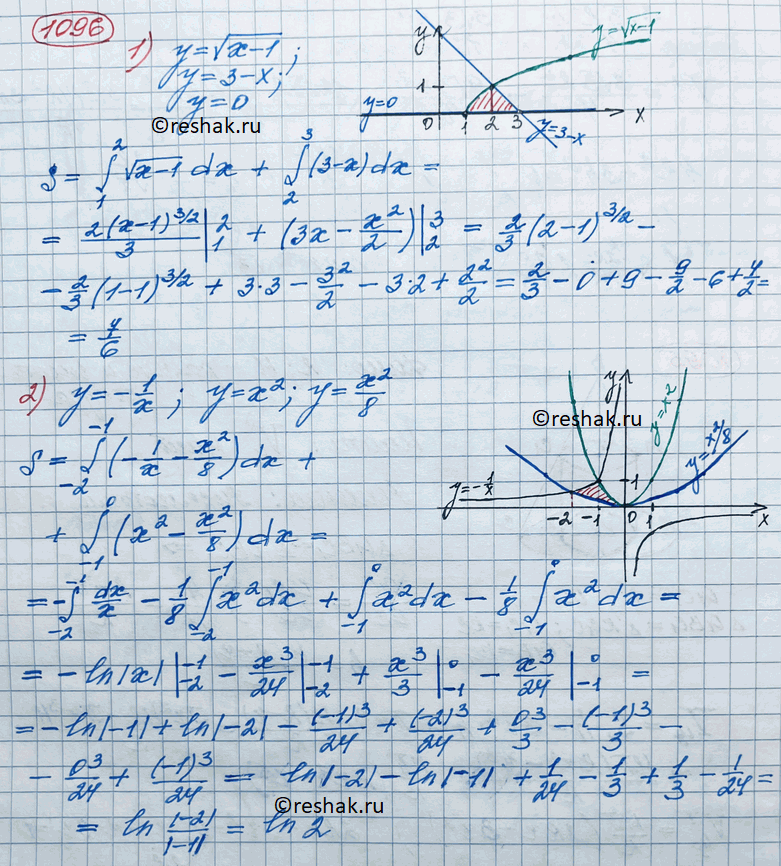 1096
1) y=√x-1;
y=3-x;
y=0
©reshak.ru
y
y=√x-1
1
y=0
0 1 2 3 x
y=3-x
S = ∫₁² √x-1 dx + ∫₂³ (3-x)dx =
= 2(x-1)^3/2 / 3 |₁² + (3x - x²/2)|₂³ = 2/3 (2-1)^3/2 -
- 2/3 (1-1)^3/2 + 3·3 - 3²/2 - 3·2 + 2²/2 = 2/3 - 0 + 9 - 9/2 - 6 + 4/2 =
= 7/6
2) y = -1/x ; y = x²; y = x²/8
y
©reshak.ru
y=x²
y=x²/8
y=-1/x
1
-2 -1 0 1 x
S = ∫₋₂⁻¹ (-1/x - x²/8) dx +
+ ∫₋₁⁰ (x² - x²/8) dx =
= -∫₋₂⁻¹ dx/x - 1/8 ∫₋₂⁻¹ x² dx + ∫₋₁⁰ x² dx - 1/8 ∫₋₁⁰ x² dx =
= -ln|x| |₋₂⁻¹ - x³/24 |₋₂⁻¹ + x³/3 |₋₁⁰ - x³/24 |₋₁⁰ =
= -ln|-1| + ln|-2| - (-1)³/24 + (-2)³/24 + 0³/3 - (-1)³/3 -
- 0³/24 + (-1)³/24 = ln|-2| - ln|-1| + 1/24 - 1/3 + 1/3 - 1/24 =
©reshak.ru
= ln |-2|/|-1| = ln 2